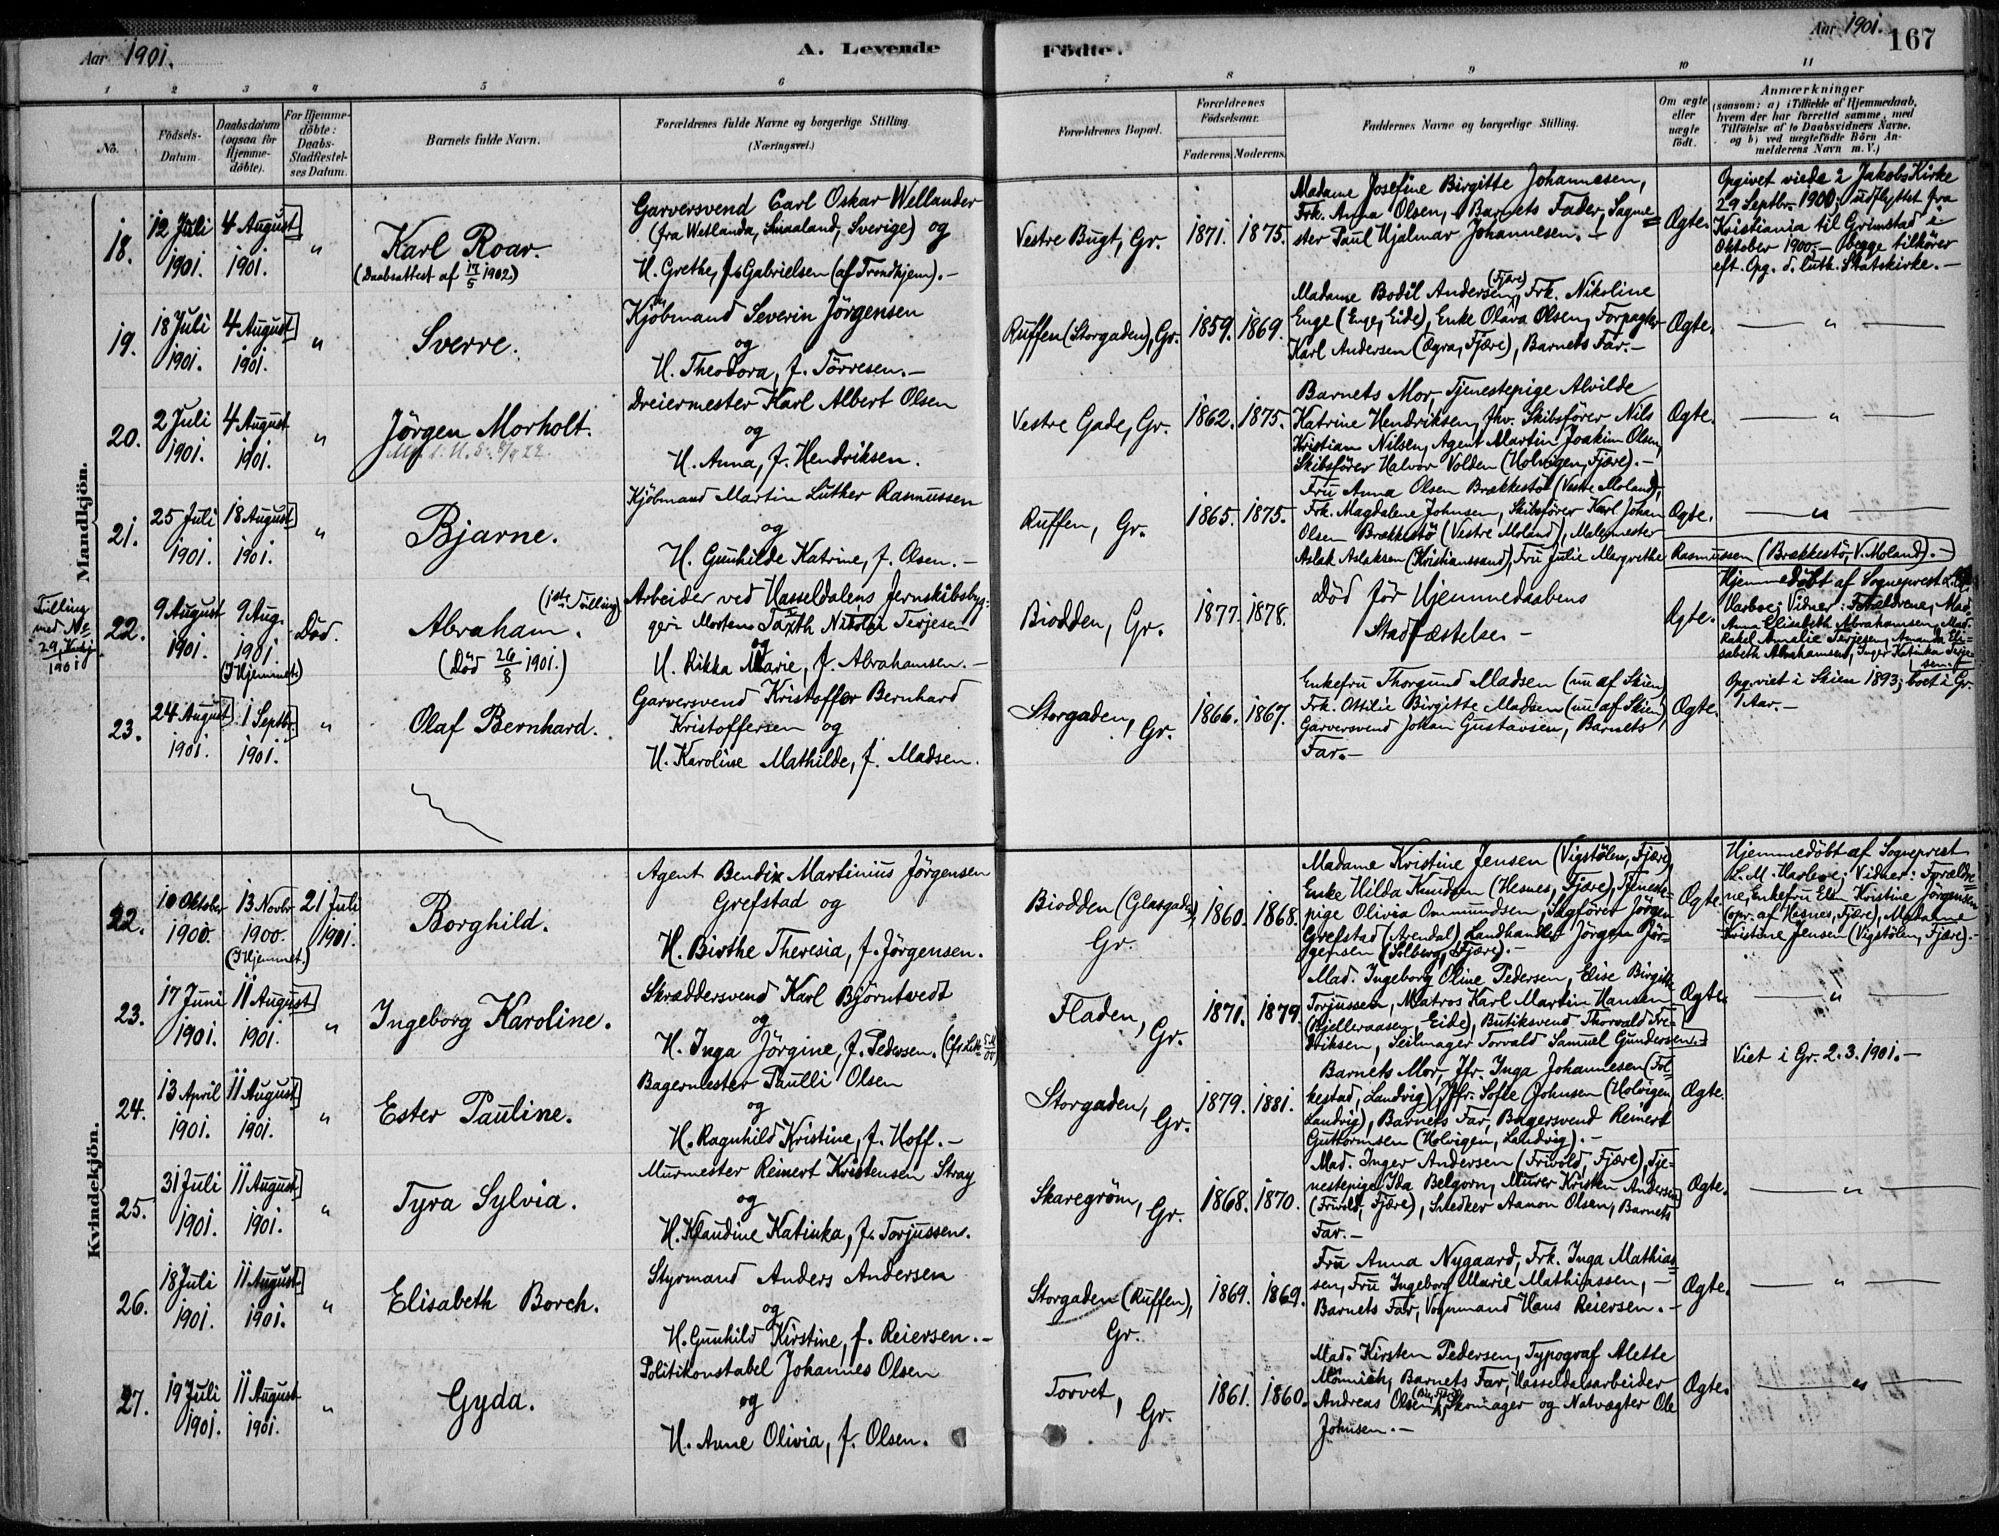 Aar 1901.
A. Levende
Födte.
Aar 1901.
167
1 2 3 4 5 6 7 8 9 10 11
No.
Födsels-Datum.
Daabsdatum (ogsaa for Hjemme-döbte).
For Hjemme-döbte: Daabs-Stadfæstel-ses Datum.
Barnets fulde Navn.
Forældrenes fulde Navne og borgerlige Stilling. (Næringsvei.)
Forældrenes Bopæl.
Forældrenes Födselsaar.
Faderens. Moderens.
Faddernes Navne og borgerlige Stilling.
Om ægte eller uægte födt.
Anmærkninger
(saasom: a) i Tilfælde af Hjemmedaab,
hvem der har forrettet samme, med
Tilföielse af to Daabsvidners Navne,
og b) ved uægtefödte Börn An-
melderens Navn m. V.)
Mandkjön.
18.
12 Juli 1901.
4 August 1901.
"
Karl Roar.
(Daabsattest af 17/5 1902)
Garversvend Carl Oskar Wellander
(fra Wetlanda, Smaaland, Sverige) og
H. Grethe, f. Gabrielsen (af Trondhjem).-
Vestre Bugt, Gr.
1871. 1875.
Madame Josefine Birgitte Johannesen,
Frk. Anna Olsen, Barnets Fader, Sagme-
ster Paul Hjalmar Johannesen.-
Ægte.
Opgivet viede i Jakobs Kirke
29 Septbr. 1900, udflyttet fra
Kristiania til Grimstad i
Oktober 1900.- begge tilhörer
eft. Opg. d. luth. Statskirke.-
19.
18 Juli 1901.
4 August 1901.
"
Sverre.
Kjöbmand Severin Jörgensen
og
H. Theodora, f. Törresen.-
Ruffen (Storgaden), Gr.
1859. 1869.
Madame Bodil Andersen (Fjære), Frk. Nikoline
Enge (Enge, Eide), Enke Olava Olsen, Forpagter
Karl Andersen (Øgra, Fjære), Barnets Far.-
Ægte.
"
20.
2 Juli 1901.
4 August 1901.
"
Jörgen Morholt.
Dreiermester Karl Albert Olsen
og
H. Anna, f. Hendriksen.
Vestre Gade, Gr.
1862. 1875.
Barnets Mor, Tjenestepige Alvilde
Katrine Hendriksen, fhv. Skibsförer Nils
Kristian Nilsen, Agent Martin Joakim Olsen,
Skibsförer Halvor Volden (Holvigen, Fjære).-
Ægte.
"
21.
25 Juli 1901.
18 August 1901.
"
Bjarne.
Kjöbmand Martin Luther Rasmussen
og
H. Gunhilde Katrine, f. Olsen.-
Ruffen, Gr.
1865. 1875.
Fru Anna Olsen Brækkestö (Vestre Moland),
Frk. Magdalene Johnsen, Skibsförer Karl Johan
Olsen Brækkestö (Vestre Moland), Malermester
Aslak Aslaksen (Kristianssand), Fru Julie Margrethe Rasmussen (Brækkestö, V. Moland).-
Ægte.
"
Tvilling
med No
29, Kvkj.
1901
22.
9 August 1901.
9 Aug. 1901 (I Hjemmet)
Död.
Abraham. (1ste Tvilling)
(Död 26/8 1901.)
Arbeider ved Hasseldalens Jernskibsbyg-
geri Morten Taxth Nikolai Terjesen
og
H. Rikka Marie, f. Abrahamsen.-
Biodden, Gr.
1877. 1878.
Död för Hjemmedaabens
Stadfæstelse.-
Ægte.
Hjemmedöbt af Sogneprest L. M.
Harboe; Vidner: Forældrene, Mad.
Anna Elisabeth Abrahamsen, Mad.
Rakel Amalie Terjesen, Amanda Eli-
sabeth Abrahamsen, Inger Katinka Terje-
sen.-
23.
24 August 1901.
1 Septbr. 1901.
"
Olaf Bernhard.
Garversvend Kristoffer Bernhard
Kristoffersen og
H. Karoline Mathilde, f. Madsen.
Storgaden, Gr.
1866. 1867.
Enkefru Thorgund Madsen (nu af Skien)
Frk. Ottilie Birgitte Madsen (nu af Skien)
Garversvend Johan Gustavsen, Barnets
Far.-
Ægte.
Opg. viet i Skien 1893; boet i Gr.
1 Aar.-
Kvindekjön.
22.
10 Oktober 1900.
13 Novbr 1900. (I Hjemmet.)
21 Juli 1901.
Borghild.
Agent Bendix Martinius Jörgensen
Grefstad og
H. Birthe Theresia, f. Jörgensen.
Biodden (Glasgaden), Gr.
1860. 1868.
Madame Kristine Jensen (Vigstölen, Fjære),
Enke Hilda Knudsen (Hesnes, Fjære), Tjeneste-
pige Olivia Ommundsen, Sagförer Jörgen
Grefstad (Arendal) Landhandler Jörgen Jör-
gensen (Solberg, Fjære).-
Ægte.
Hjemmedöbt af Sogneprest
L. M. Harboe; Vidner: Forældre-
ne, Enkefru Elen Kristine Jörgensen
(opr. af Hesnes, Fjære), Madame
Kristine Jensen (Vigstölen, Fjære).-
23.
17 Juni 1901.
11 August 1901.
"
Ingeborg Karoline.
Skræddersvend Karl Björntvedt
og
H. Inga Jörgine, f. Pedersen.
Fladen, Gr.
1871. 1879.
Mad. Ingeborg Oline Pedersen, Elise Birgitte
Torjussen, Matros Karl Martin Hansen
(Bjelleraasen, Eide), Butiksvend Thorvald Fre-
driksen, Seilmager Torvald Samuel Gundersen.-
Ægte.
"
24.
13 April 1901.
11 August 1901.
"
Ester Pauline.
Bagermester Paulli Olsen
og
H. Ragnhild Kristine, f. Hoff.-
Storgaden, Gr.
1879. 1881.
Barnets Mor, Jfr. Inga Johannesen (Fol-
kestad, Landvig), Jfr. Sofie Johnsen (Holvigen,
Landvig), Barnets Far, Bagersvend Reinert
Guttormsen (Holvigen, Landvig).-
Ægte.
Viet i Gr. 2.3.1901.-
25.
31 Juli 1901.
11 August 1901.
"
Tyra Sylvia.
Murmester Reinert Kristensen Stray
og
H. Klaudine Katinka, f. Torjussen.
Skaregröm, Gr.
1868. 1870.
Mad. Inger Andersen (Frivold, Fjære), Tje-
nestepige Ida Belgorn, Murer Kristen Andersen
(Frivold, Fjære), Snedker Aanon Olsen, Barnets
Far.-
Ægte.
"
26.
18 Juli 1901.
11 August 1901.
"
Elisabeth Borch.
Styrmand Anders Andersen
og
H. Gunhild Kirstine, f. Reiersen.-
Storgaden (Ruffen), Gr.
1869. 1869.
Fru Anna Nygaard, Frk. Inga Mathias-
sen, Fru Ingeborg Marie Mathiassen,-
Barnets Far, Vognmand Hans Reiersen.-
Ægte.
"
27.
19 Juli 1901.
11 August 1901.
"
Gyda.
Politikonstabel Johannes Olsen
og
H. Anne Olivia, f. Olsen.
Torvet, Gr.
1861. 1860.
Mad. Kirsten Pedersen, Typograf Alette
Mömich, Barnets Far, Hasseldalsarbeider
Andreas Olsen, Skomager og Natvægter Ole
Johnsen.-
Ægte.
"